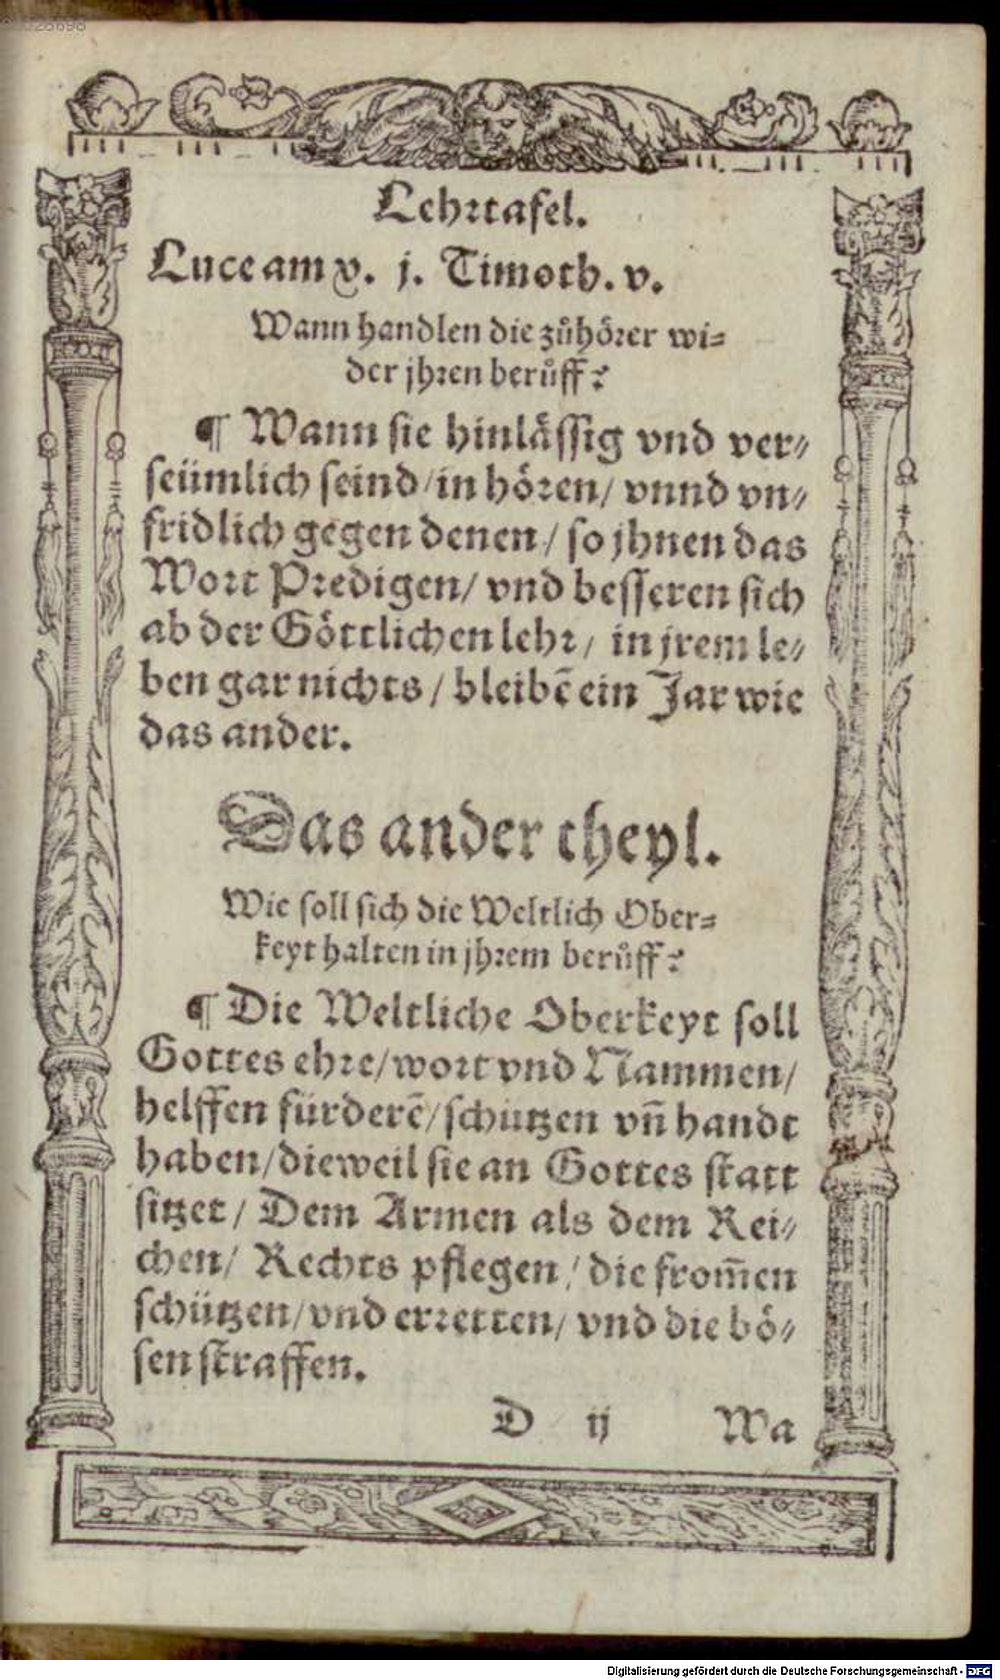 Lehrtafel.
Luce am v. j. Timoth. v.
Wann handlen die zůhörer wi=
der jhren berůff?
¶ Wann sie hinlässig vnd ver⸗
seümlich seind/ in hören/ vnnd vn⸗
fridlich gegen denen/ so jhnen das
Wort Predigen/ vnd besseren sich
ab der Göttlichen lehr/ in jrem le⸗
ben gar nichts/ bleibē ein Jar wie
das ander.
Das ander theyl.
Wie soll sich die Weltlich Ober=
keyt halten in jhrem berůff?
¶ Die Weltliche Oberkeyt soll
Gottes ehre/ wort vnd Nammen/
helffen fürderē/ schützen vn̄ handt
haben/ dieweil sie an Gottes statt
sitzet/ Dem Armen als dem Rei⸗
chen/ Rechts pflegen/ die from̄en
schützen/ vnd erretten/ vnd die bö⸗
sen straffen.
D ij Wa
Digitalisierung gefördert durch die Deutsche Forschungsgemeinschaft - DFG